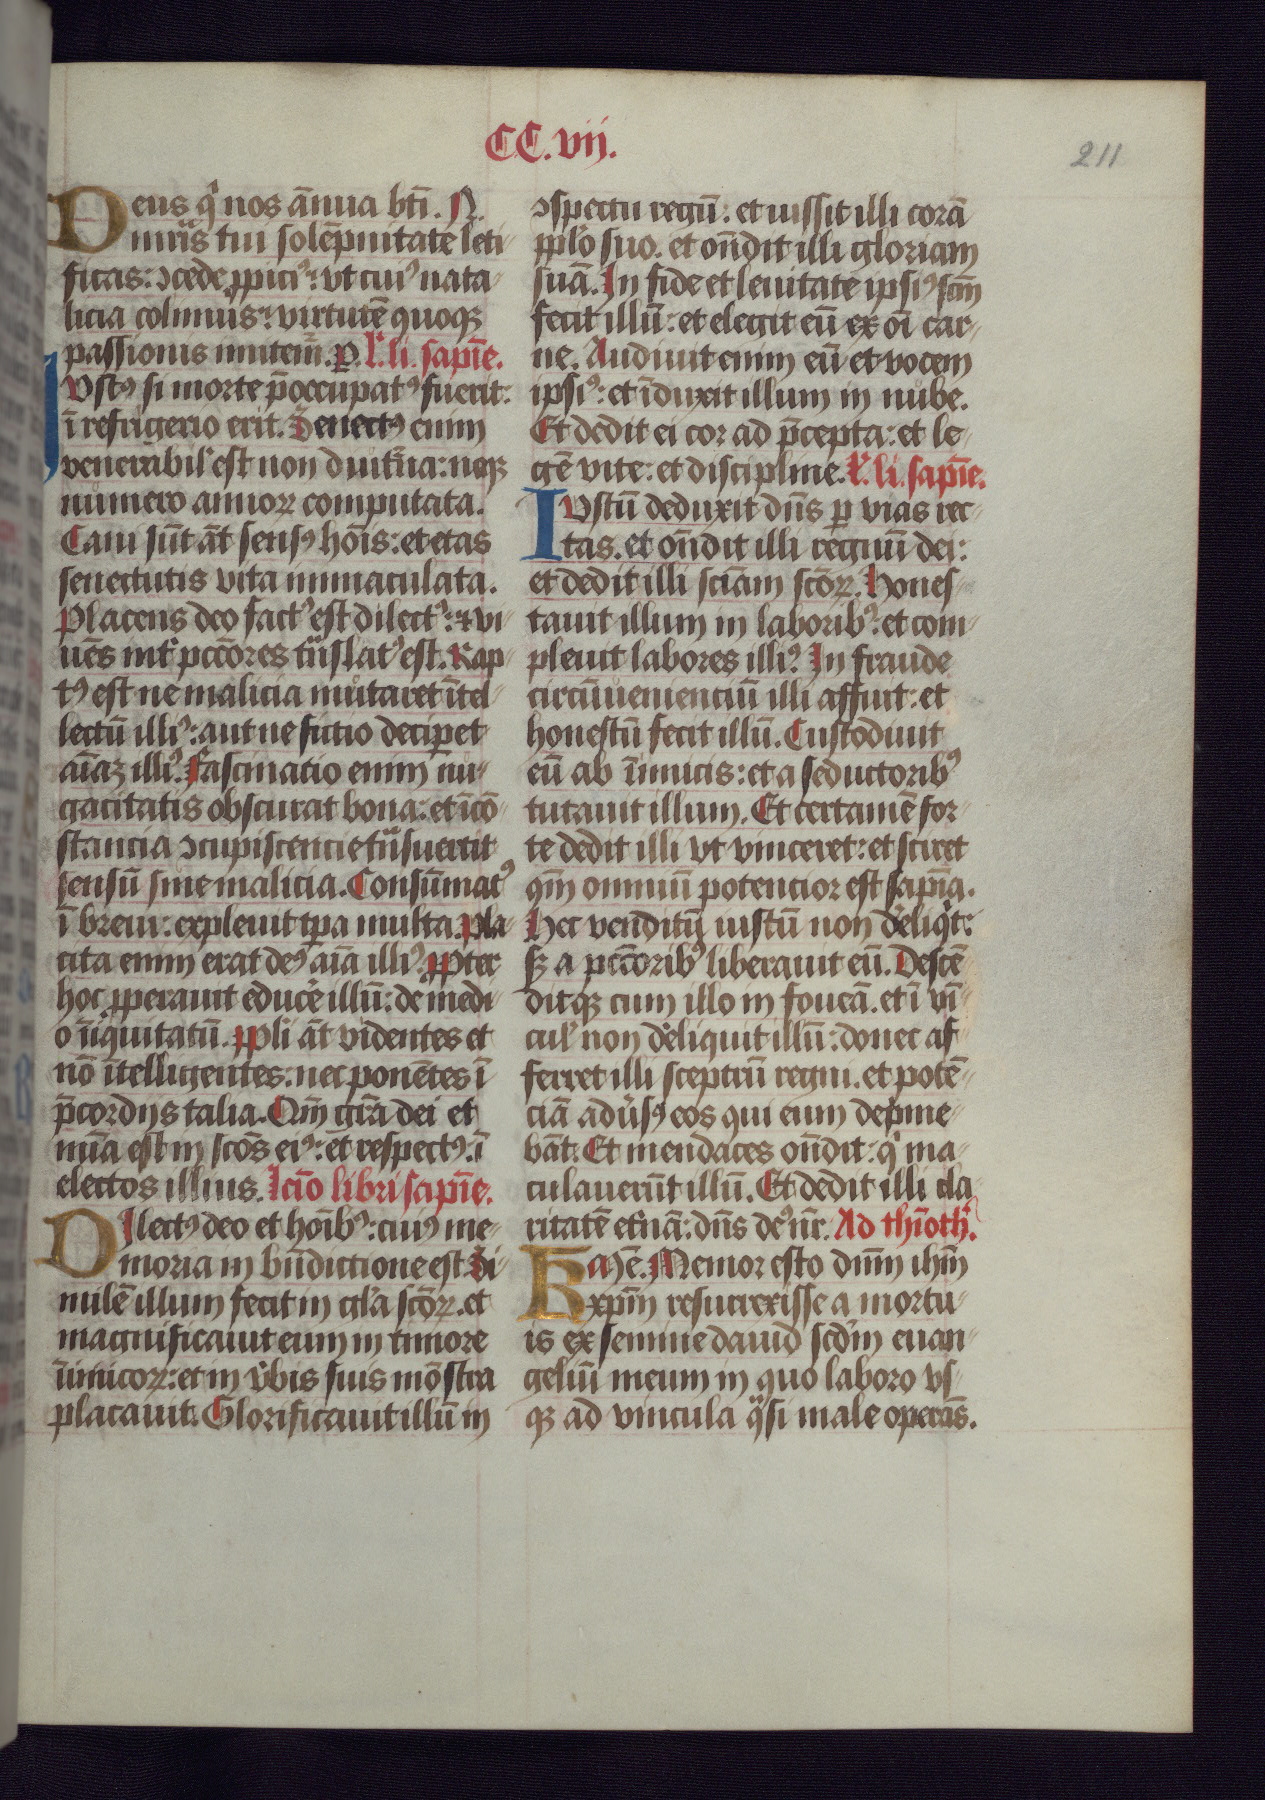 CC.vij.
211
Deus q̇ nos ānua btī. N.
mr̄is tui solēpnitate leti-
ficas: ꝯcede ꝓpiciꝰ: vt cuiꝰ nata-
licia colimus: virtutē quoqꝫ
passionis imitem̄. ꝑ. l̄. li. sapīe.
Iustꝰ si morte p̄occupatꝰ fuerit:
ī refrigerio erit. Senectꝰ enim
venerabil' est non diuīt̄na: neqꝫ
numero annoꝝ computata.
Cani sūt āt sensꝰ hoīs: et etas
senectutis vita immaculata.
Placens deo factꝰ est dilectꝰ: ⁊ vi-
uēs int̄ pccōres tn̄slatꝰ est. Rap-
tꝰ est ne malicia mutaret ītel-
lectū illiꝰ: aut ne fictio deciꝑet
aīaꝫ illiꝰ. Fascinatio enim nu-
gacitatis obscurat bona: et īcō-
stancia ꝯcupiscencie tn̄suertit
sensū sine malicia. Consūmatꝰ
ī breui: expleuit tꝑa multa. Pla-
cita enim erat deꝰ aīa illiꝰ. ꝓpter
hoc ꝓperauit educē illū: de medi-
o īiquitatū. Ppli āt videntes et
nō ītelligentes: nec ponētes ī
p̄cordijs talia. Qm̄ gr̄a dei et
mīa est in scōs eiꝰ: et respectꝰ: ī
electos illius. lcīo libri sapīe.
Dilectꝰ deo et hoībꝰ: cuiꝰ me-
moria in bn̄dictione est. Si-
milē illum fecit in gl'a scōꝝ. et
magnificauit eum in timore
īimicoꝝ: et in v̄bis suis mōstra
placauit. Glorificauit illū in
ꝯspectu regū: et iussit illi corā
ppl'o suo. et on̄dit illi gloriam
suā. In fide et lenitate ipsiꝰ scm̄
fecit illū: et elegit eū ex oī car-
ne. Audiuit enim eū et vocem
ipsiꝰ: et īduxit illum in nube.
Et dedit ei cor ad p̄cepta: et le-
gē vite: et discipline. l̄. li. sapīe.
Iustū deduxit dn̄s ꝑ vias rec-
tas. et on̄dit illi regnū dei:
et dedit illi sciam scōꝝ. Hones-
tauit illum in laboribꝰ: et com-
pleuit labores illiꝰ. In fraude
circūueniencīū illi affuit: et
honestū fecit illū. Custodiuit
eū ab īimicis: et a seductoribꝰ
tutauit illum. Et certamē for-
te dedit illi vt vinceret: et sciret
qm̄ omniū potencior est sapīa.
Hec venditū iustū non deliq̇t:
sꝫ a pccōribꝰ liberauit eū. Descē-
ditqꝫ cum illo in foueā. et ī vī-
cul' non deliquit illū: donec af-
ferret illi sceptrū regni. et potē-
ciā adūsꝰ eos qui eum depme-
bāt: Et mendaces on̄dit: q̇ ma-
culauerūt illū. Et dedit illi cla-
ritatē et̄nā: dn̄s deꝰ nr̄. Ad thīoth.
Kaꝛē. Memor esto dnm̄ ihm̄
xpm̄ resurrexisse a mortu-
is ex semine dauid scd'm euan-
geliū meum in quo laboro vs-
qꝫ ad vincula qͣsi male operās.